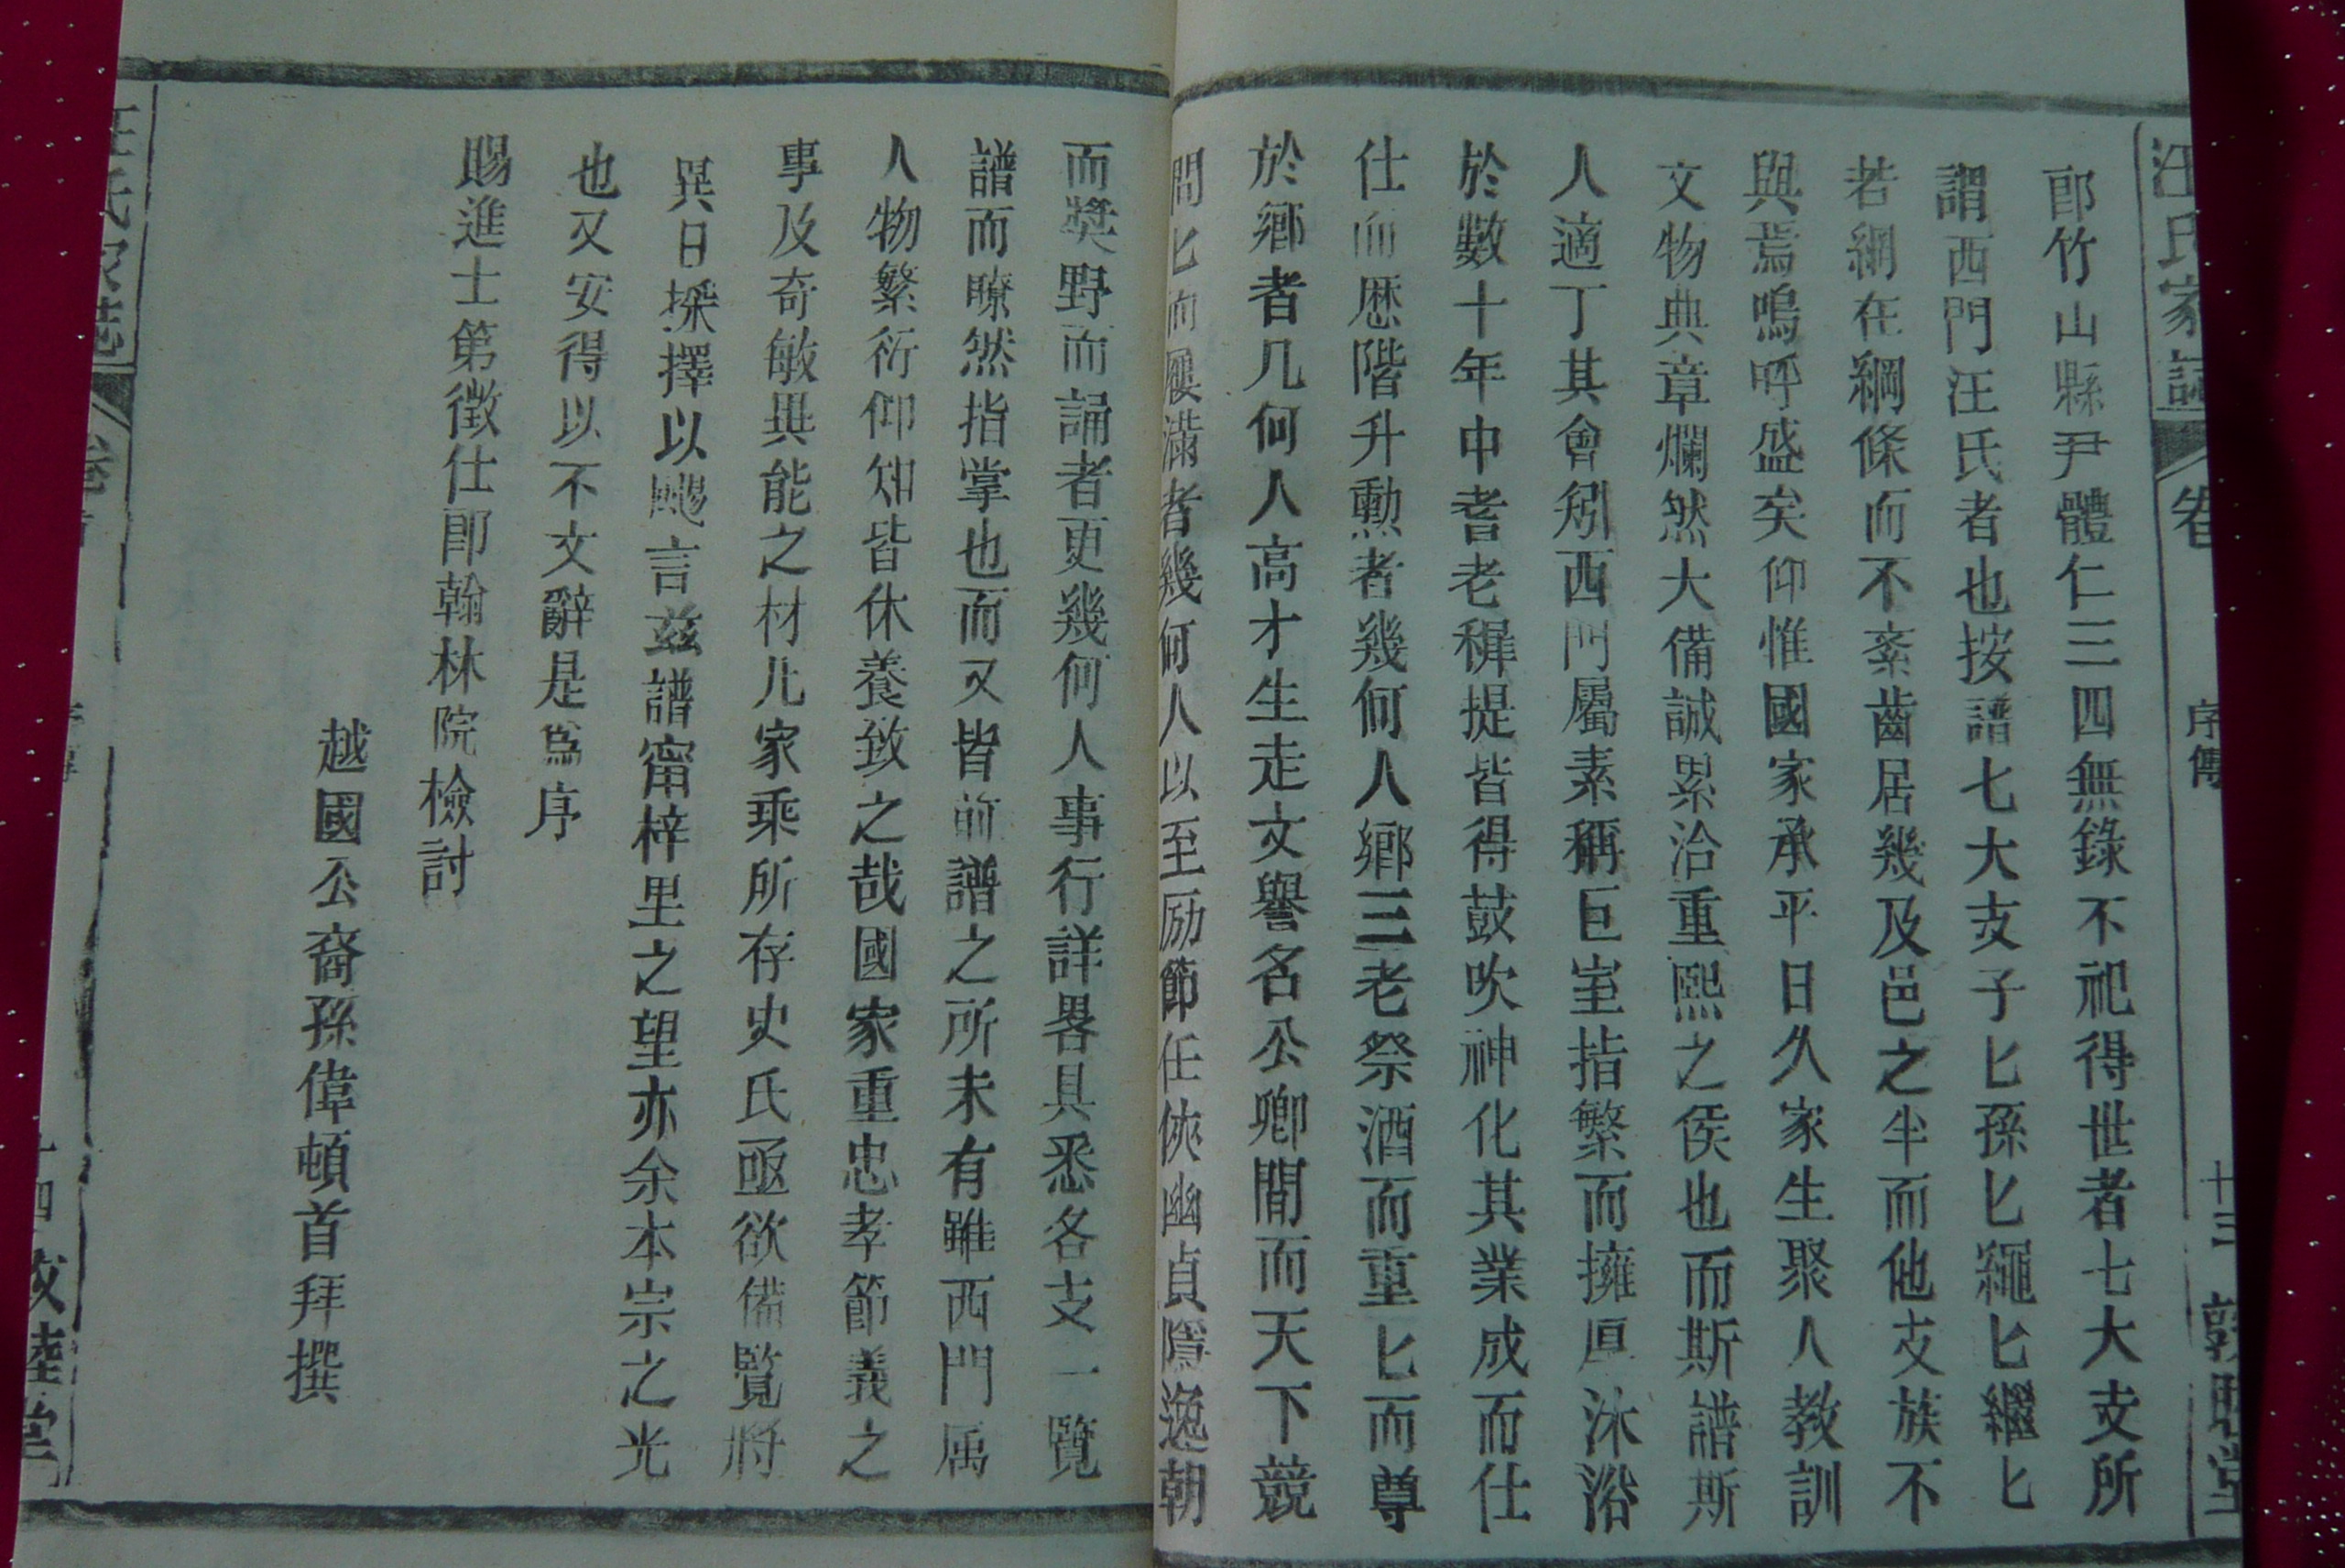 汪氏家誌
卷
序傳
十三
敦睦堂
郎竹山縣尹體仁三四無錄不祀得世者七大支所
謂西門汪氏者也按譜七大支子匕孫匕繩匕繼匕
若網在綱條而不紊齒居幾及邑之半而他支族不
與焉嗚呼盛矣仰惟國家承平日久家生聚人教訓
文物典章爛然大備誠累洽重熙之侯也而斯譜斯
人適丁其會矧西門屬素稱巨室指繁而擁厚沐浴
於數十年中耆老穉提皆得鼓吹神化其業成而仕
仕而歴階升勳者幾何人鄉三老祭酒而重匕而尊
於鄉者几何人高才生走文譽名公卿間而天下競
問匕而屨滿者幾何人以至励節任俠幽貞隱逸朝
而獎野而誦者更幾何人事行詳畧具悉各支一覽
譜而瞭然指掌也而又皆前譜之所未有雖西門属
人物繁衍仰知皆休養致之哉國家重忠孝節義之
事及奇敏異能之材凡家乘所存史氏亟欲備覽將
異日採擇以颺言兹譜甯梓里之望亦余本宗之光
也又安得以不文辭是爲序
賜進士第徵仕郎翰林院檢討
越國公裔孫偉頓首拜撰
汪氏家誌
卷首
序傳
十四
敦睦堂